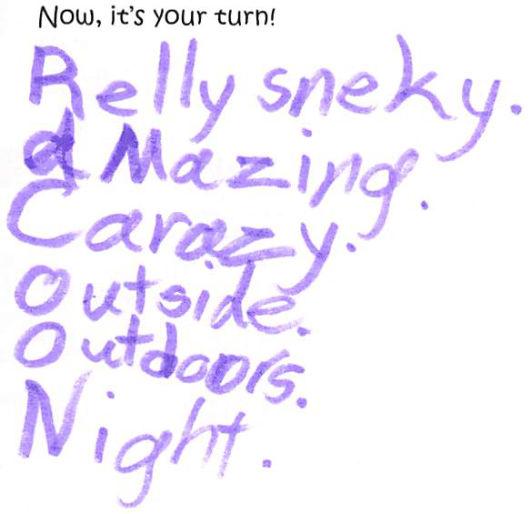 Now, it's your turn!
Relly sneky.
aMazing.
Carazy.
Outside.
Outdoors.
Night.